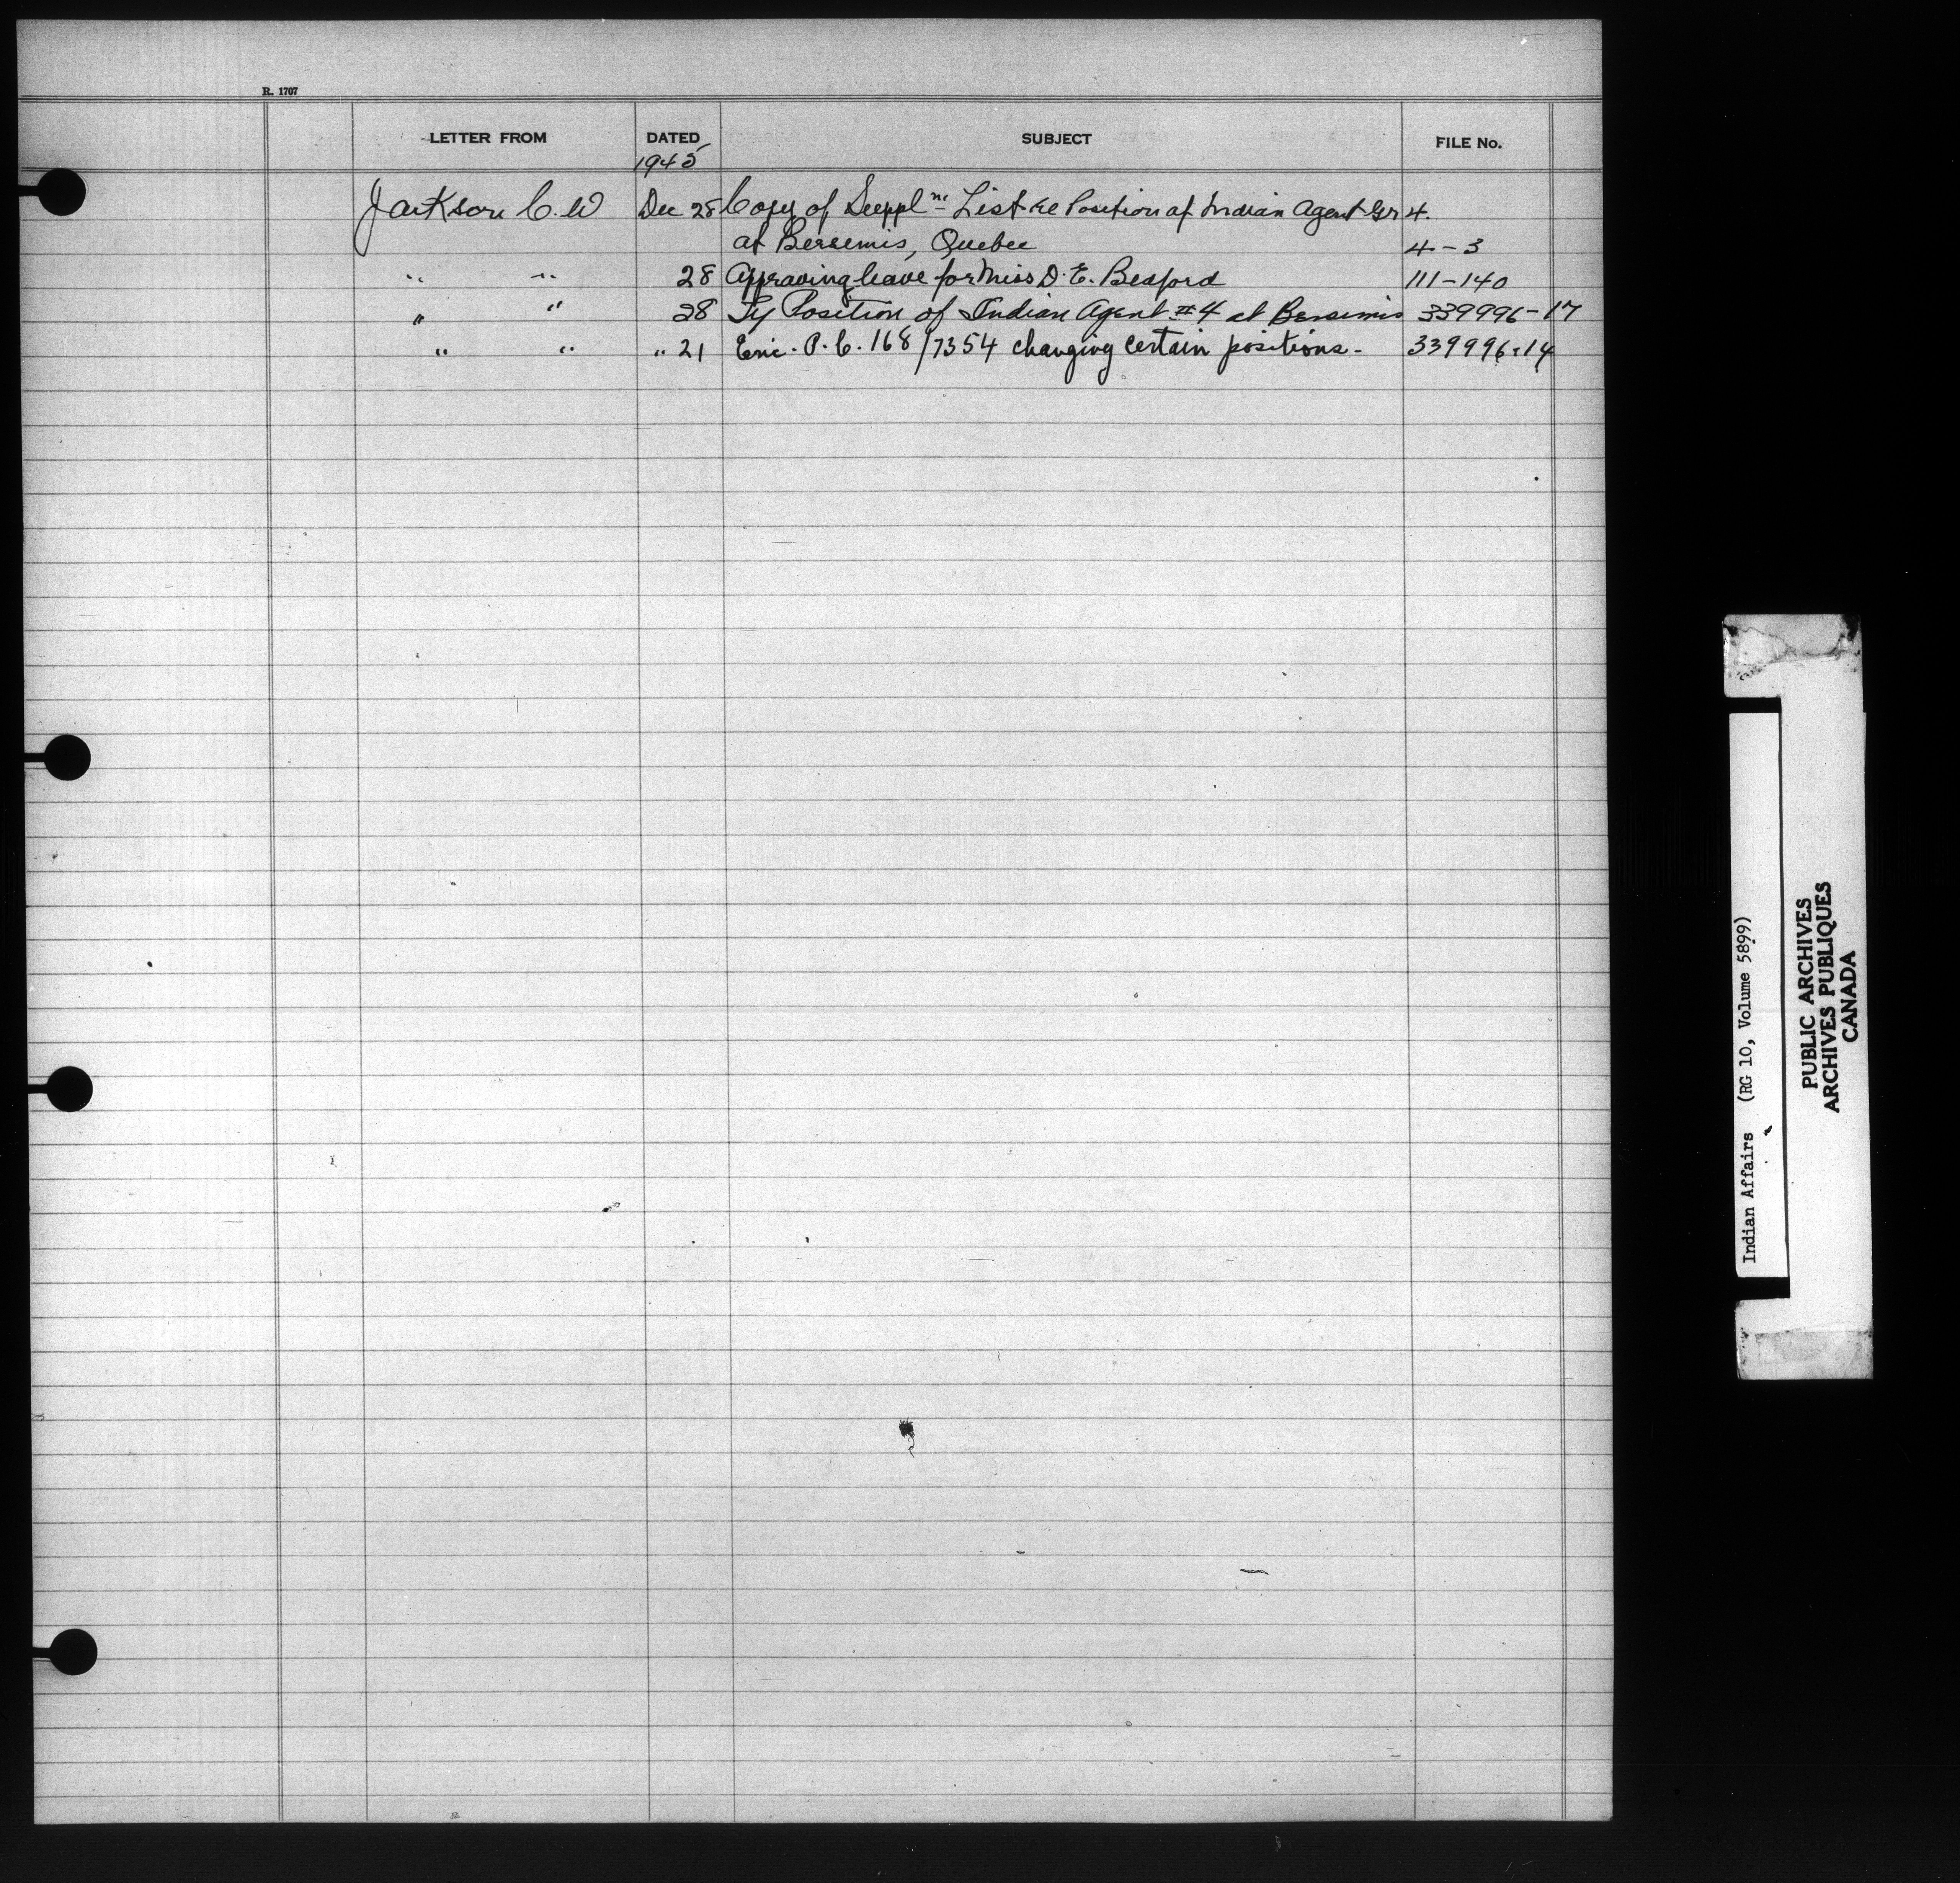 R. 1707
LETTER FROM DATED SUBJECT FILE No.
1945
Jackson C. W Dec 28 Copy of Suppl ny List re Position of Indian Agent Gr 4.
at Bersemis, Quebec 4-3
" " 28 Approving leave for Miss D. E. Bedford 111-140
" " 28 Position of Indian Agent #4 at Bersimis 339996-17
" " " 21 Enc. P. C. 168/7354 changing certain positions- 339996-14
Indian Affairs (RG 10, Volume 5899)
PUBLIC ARCHIVES
ARCHIVES PUBLIQUES
CANADA